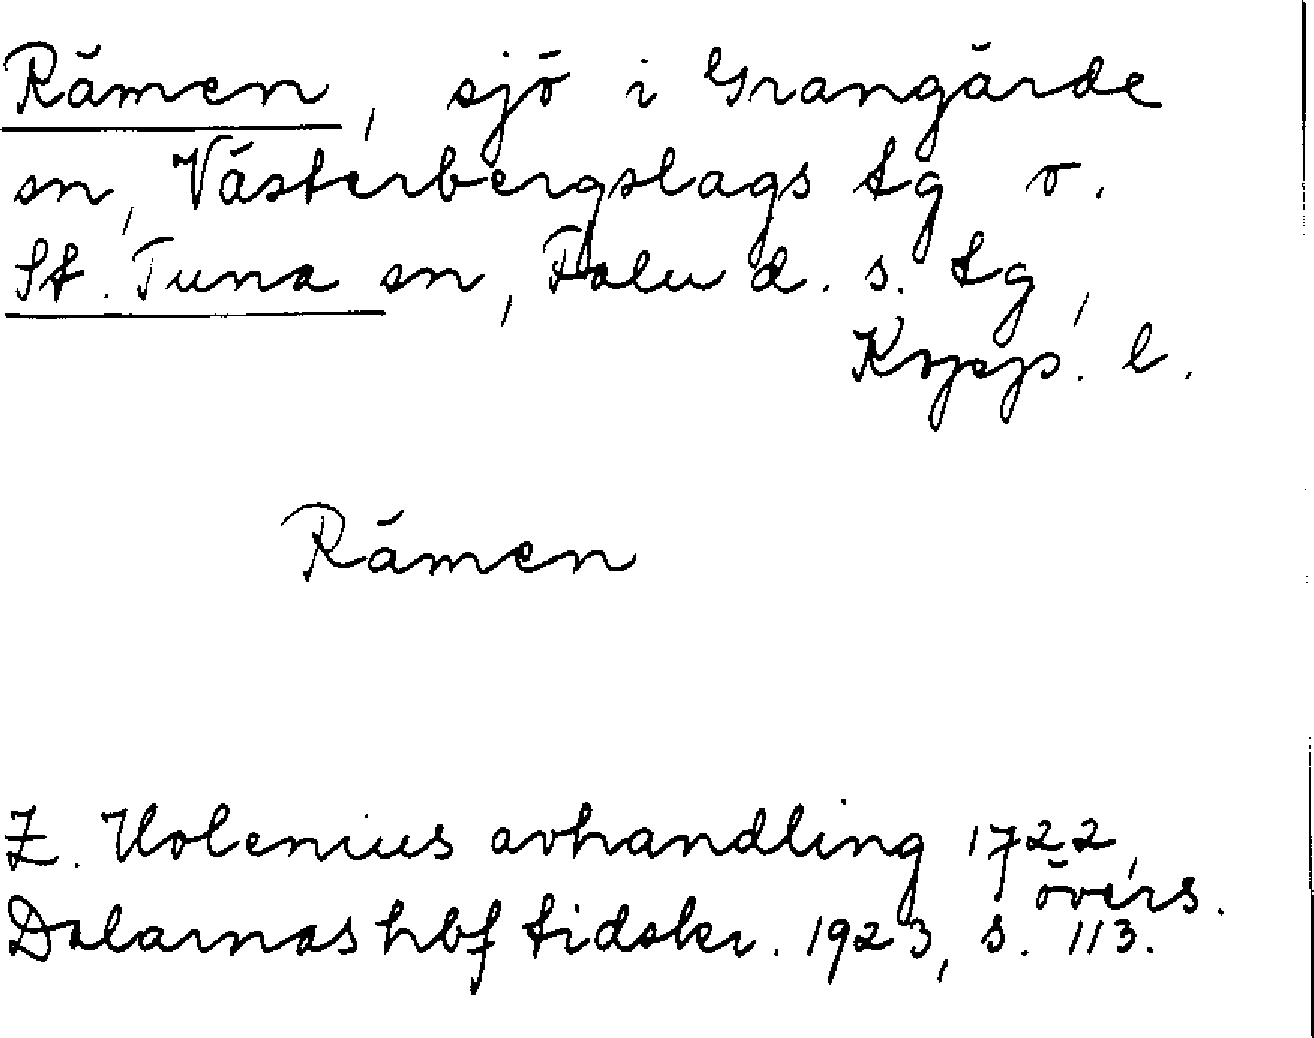 Rämen, sjö i Grangärde
sn, Västerbergslags tg o.
St. Tuna sn, Falu d. s. tg,
Kopp. l.
Rämen
Z. Holenius avhandling 1722,
övers.
Dalarnas hbf tidskr. 1923, s. 113.